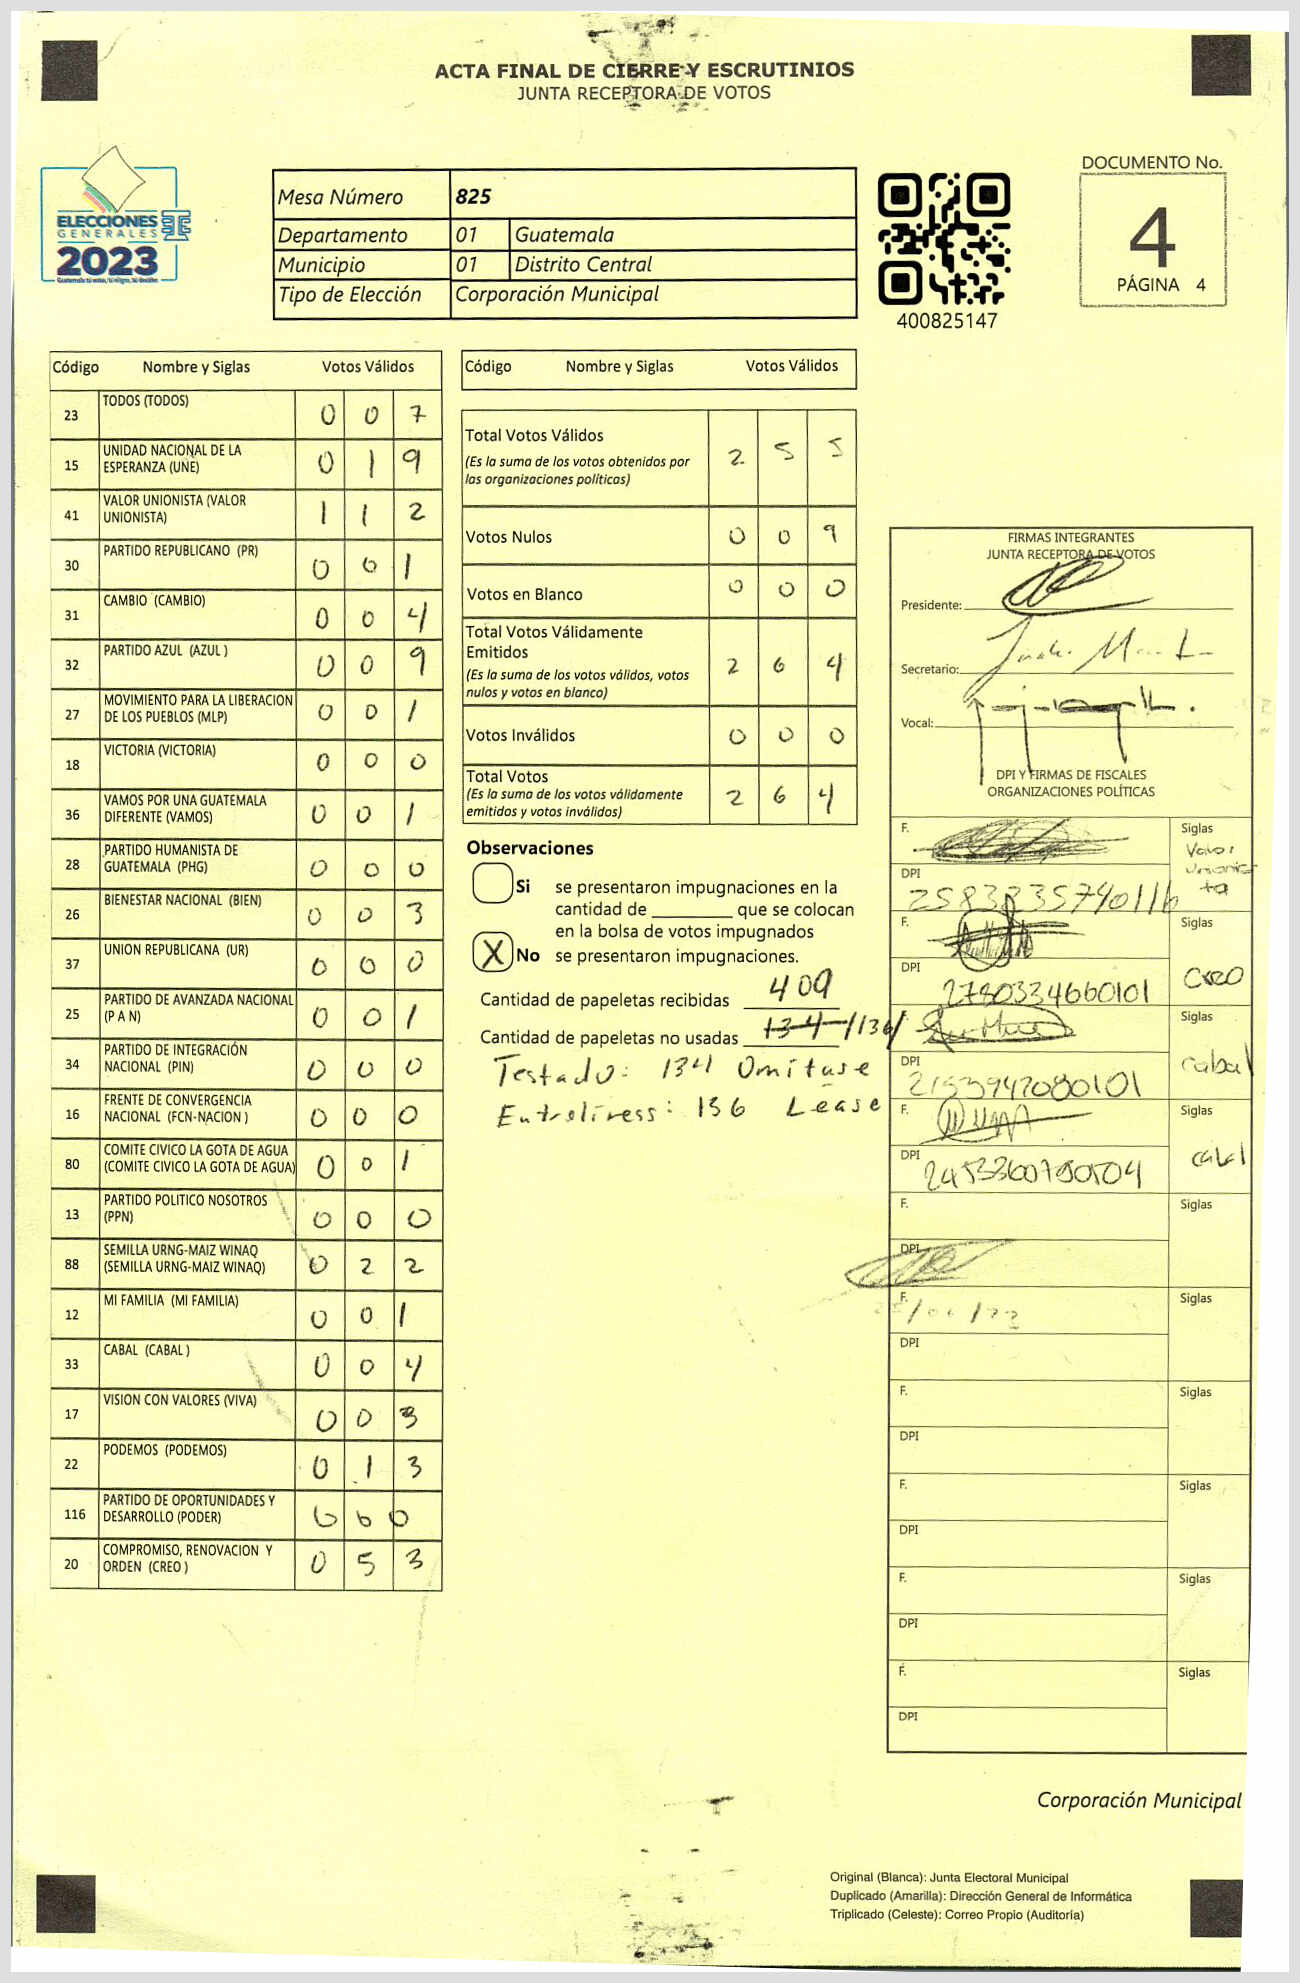 ACTA FINAL DE CIERRE Y ESCRUTINIOS
JUNTA RECEPTORA DE VOTOS
ELECCIONES
GENERALES
2023
Mesa Número 825
Departamento 01 Guatemala
Municipio 01 Distrito Central
Tipo de Elección Corporación Municipal
400825147
DOCUMENTO No.
4
PÁGINA 4
Código Nombre y Siglas Votos Válidos
23 TODOS (TODOS) 0 0 7
15 UNIDAD NACIONAL DE LA
ESPERANZA (UNE) 0 1 9
41 VALOR UNIONISTA (VALOR
UNIONISTA) 1 1 2
30 PARTIDO REPUBLICANO (PR) 0 0 1
31 CAMBIO (CAMBIO) 0 0 4
32 PARTIDO AZUL (AZUL ) 0 0 9
27 MOVIMIENTO PARA LA LIBERACION
DE LOS PUEBLOS (MLP) 0 0 1
18 VICTORIA (VICTORIA) 0 0 0
36 VAMOS POR UNA GUATEMALA
DIFERENTE (VAMOS) 0 0 1
28 PARTIDO HUMANISTA DE
GUATEMALA (PHG) 0 0 0
26 BIENESTAR NACIONAL (BIEN) 0 0 3
37 UNION REPUBLICANA (UR) 0 0 0
25 PARTIDO DE AVANZADA NACIONAL
(P A N) 0 0 1
34 PARTIDO DE INTEGRACIÓN
NACIONAL (PIN) 0 0 0
16 FRENTE DE CONVERGENCIA
NACIONAL (FCN-NACION ) 0 0 0
80 COMITE CIVICO LA GOTA DE AGUA
(COMITE CIVICO LA GOTA DE AGUA) 0 0 1
13 PARTIDO POLITICO NOSOTROS
(PPN) 0 0 0
88 SEMILLA URNG-MAIZ WINAQ
(SEMILLA URNG-MAIZ WINAQ) 0 2 2
12 MI FAMILIA (MI FAMILIA) 0 0 1
33 CABAL (CABAL ) 0 0 4
17 VISION CON VALORES (VIVA) 0 0 3
22 PODEMOS (PODEMOS) 0 1 3
116 PARTIDO DE OPORTUNIDADES Y
DESARROLLO (PODER) 0 0 0
20 COMPROMISO, RENOVACION Y
ORDEN (CREO ) 0 5 3
Código Nombre y Siglas Votos Válidos
Total Votos Válidos 2 5 5
(Es la suma de los votos obtenidos por
las organizaciones políticas)
Votos Nulos 0 0 9
Votos en Blanco 0 0 0
Total Votos Válidamente
Emitidos 2 6 4
(Es la suma de los votos válidos, votos
nulos y votos en blanco)
Votos Inválidos 0 0 0
Total Votos 2 6 4
(Es la suma de los votos válidamente
emitidos y votos inválidos)
Observaciones
Si se presentaron impugnaciones en la
cantidad de ________ que se colocan
en la bolsa de votos impugnados
X No se presentaron impugnaciones.
Cantidad de papeletas recibidas 409
Cantidad de papeletas no usadas 134 /136/
Testado: 134 Omitase
Entrelíneas: 136 Lease
FIRMAS INTEGRANTES
JUNTA RECEPTORA DE VOTOS
Presidente:
Secretario:
Vocal:
DPI Y FIRMAS DE FISCALES
ORGANIZACIONES POLÍTICAS
F. Siglas
Valor
Unionista
DPI 2583235740116
F. Siglas
DPI 2780334660101 Creo
Siglas
DPI 2153942080101 cabal
F. Siglas
DPI 2453360790504 cabal
F. Siglas
DPI
F. Siglas
DPI
F. Siglas
DPI
F. Siglas
DPI
F. Siglas
DPI
F. Siglas
DPI
Corporación Municipal
Original (Blanca): Junta Electoral Municipal
Duplicado (Amarilla): Dirección General de Informática
Triplicado (Celeste): Correo Propio (Auditoría)